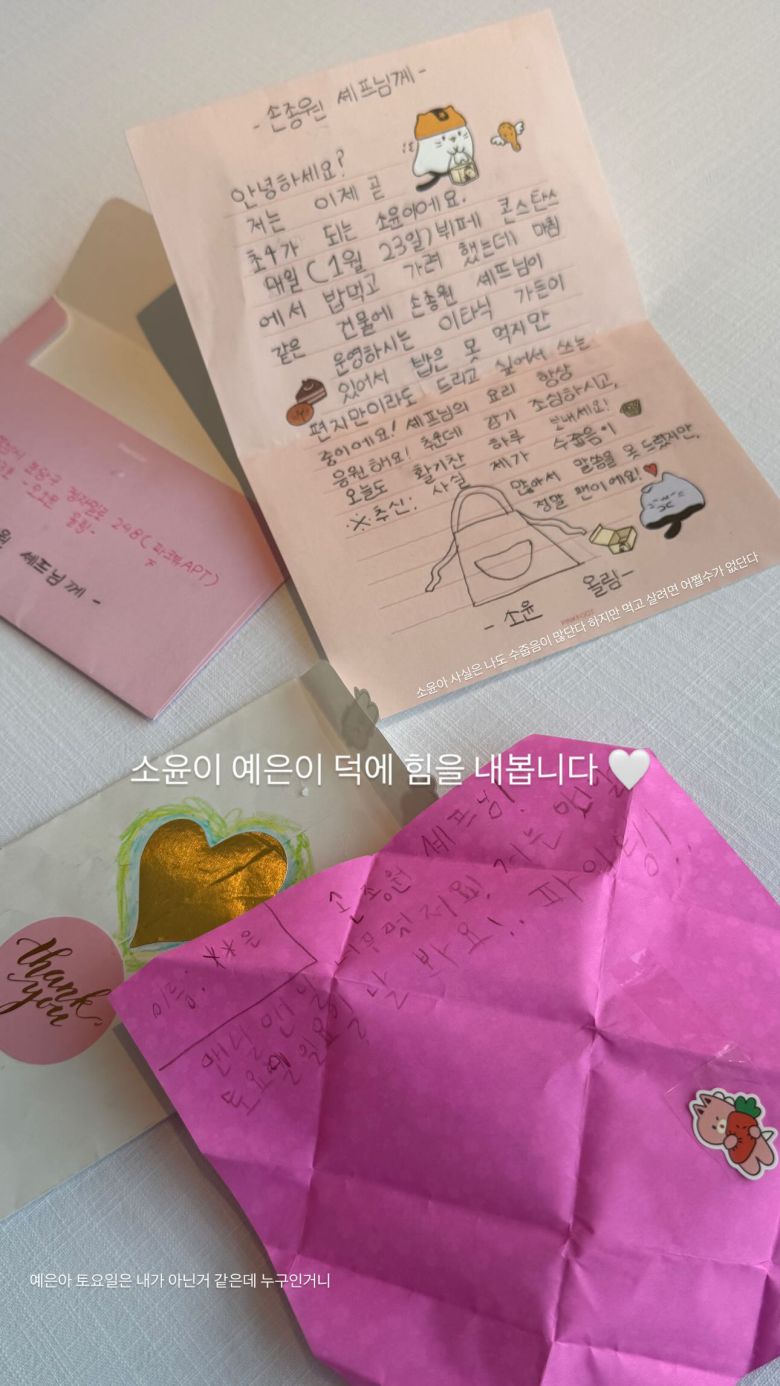 - 손종원 셰프님께 -
안녕하세요?
저는 이제 곧
초4가 되는 소윤이에요.
내일(1월 23일) 뷔페 콘스탄스
에서 밥먹고 가려 했는데 마침
같은 건물에 손종원 셰프님이
운영하시는 이타닉 가든이
있어서 밥은 못 먹지만
편지만이라도 드리고 싶어서 쓰는
중이에요! 셰프님의 요리 항상
응원해요! 추운데 감기 조심하시고,
오늘도 활기찬 하루 보내세요!
※추신: 사실 제가 수줍음이
많아서 말씀을 못 드렸지만,
정말 팬이에요!
- 소윤 올림-
소윤아 사실은 나도 수줍음이 많단다 하지만 먹고 살려면 어쩔수가 없단다
248(파크뷰APT)
소윤 올림-
셰프님께 -
소윤이 예은이 덕에 힘을 내봅니다 🤍
thank
you
손종원 셰프님!
너무 멋져요! 저는
이름: **은
맨날맨날
토요일 일요일 날 봐요!. 파이팅!.
예은아 토요일은 내가 아닌거 같은데 누구인거니